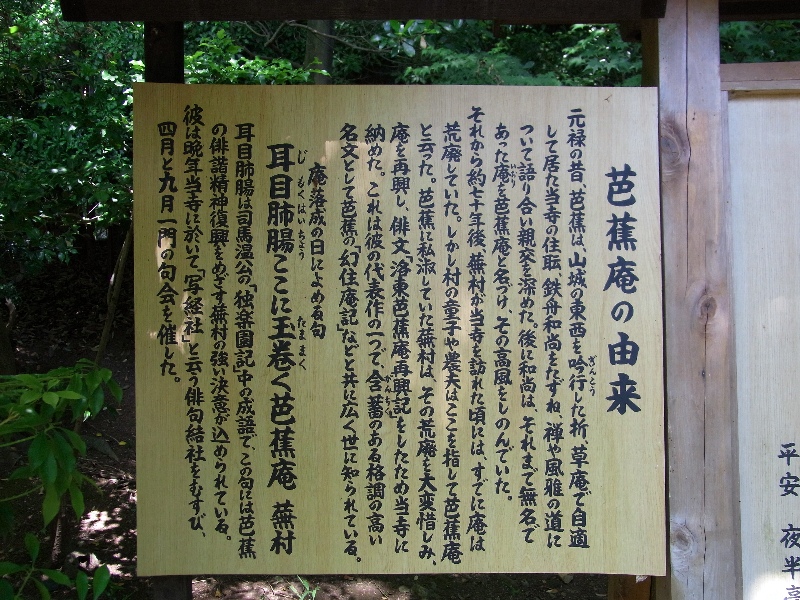 芭蕉庵の由来
元禄の昔、芭蕉は、山城の東西を吟行した折、草庵で自適
して居た当寺の住職・鉄舟和尚をたずね、禅や風雅の道に
ついて語り合い親交を深めた。後に和尚は、それまで無名で
あった庵を芭蕉庵と名づけ、その高風をしのんでいた。
それから約七十年後、蕪村が当寺を訪れた頃には、すでに庵は
荒廃していた。しかし村の童子や農夫はここを指して芭蕉庵
と云った。芭蕉に私淑していた蕪村は、その荒廃を大変惜しみ、
庵を再興し、俳文「洛東芭蕉庵再興記」をしたため当寺に
納めた。これは彼の代表作の一つで、含蓄のある格調の高い
名文として芭蕉の「幻住庵記」などと共に広く世に知られている。
庵落成の日によめる句
耳目肺腸ここに玉巻く芭蕉庵 蕪村
じもくはいちょう たままく
耳目肺腸は司馬温公の「独楽園記」中の成語で、この句には芭蕉
の俳諧精神復興をめざす蕪村の強い決意が込められている。
彼は晩年当寺に於いて「写経社」と云う俳句結社をむすび、
四月と九月一門の句会を催した。
平安 夜半亭